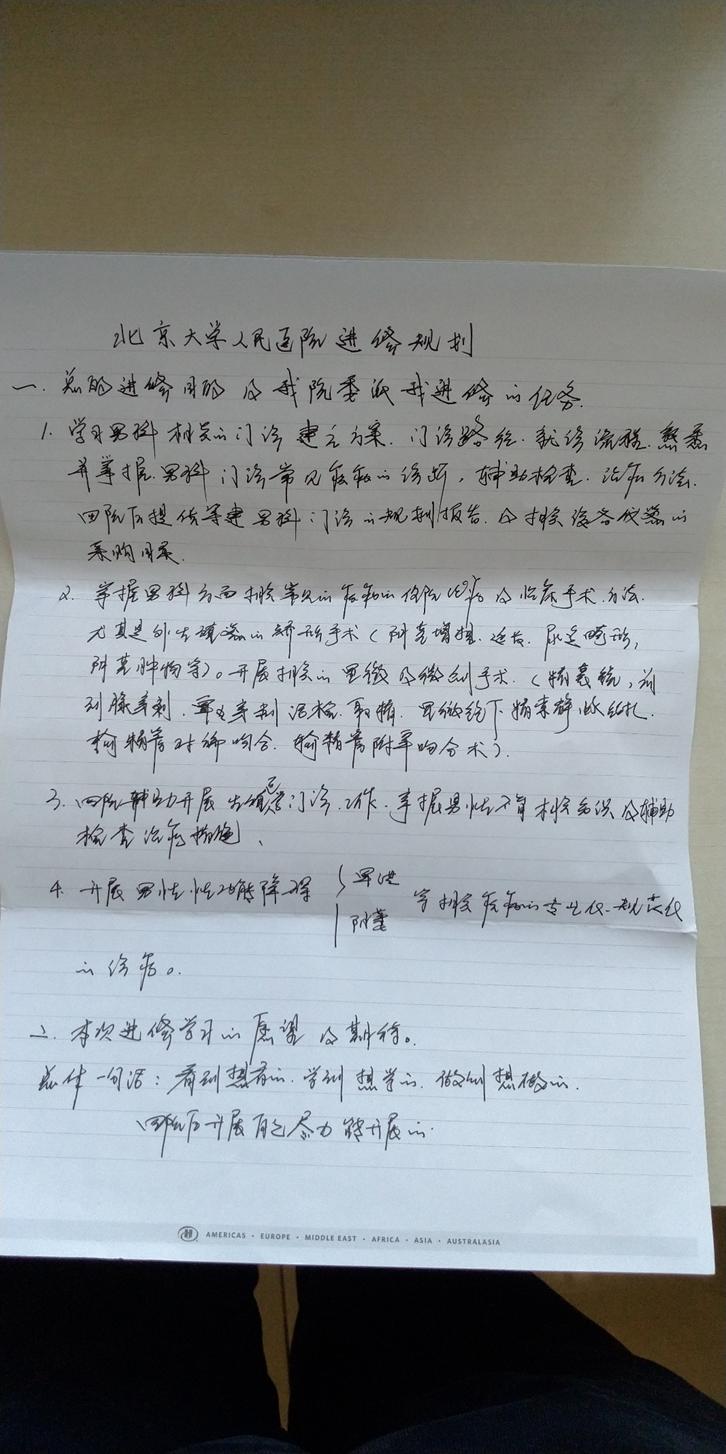 北京大学人民医院进修规划
一. 总的进修目的及我院委派我进修的任务.
1. 学习男科相关的门诊建立方案. 门诊路线. 就诊流程. 熟悉
并掌握男科门诊常见疾病的诊断, 辅助检查. 治疗方法.
回院后提供筹建男科门诊的规划报告. 及相关设备仪器的
采购目录.
2. 掌握男科方面相关常见的疾病的住院治疗及临床手术方法.
尤其是外生殖器的矫形手术(阴茎增粗. 延长. 尿道畸形,
阴茎肿物等)。开展相关的显微及微创手术.(精囊镜, 前
列腺穿刺. 睾丸穿刺活检. 取精. 显微镜下精索静脉结扎.
输精管对端吻合. 输精管附睾吻合术).
3. 回院辅助开展生殖门诊工作. 掌握男性不育相关知识及辅助
检查治疗措施、
4. 开展男性性功能障碍 { 早泄 阴萎 等相关疾病的专业化. 规范化
的诊疗。
二. 本次进修学习的愿望及期待。
总体一句话: 看到想看的. 学到想学的. 做到想做的.
回院后开展自己尽力能开展的.
H AMERICAS · EUROPE · MIDDLE EAST · AFRICA · ASIA · AUSTRALASIA